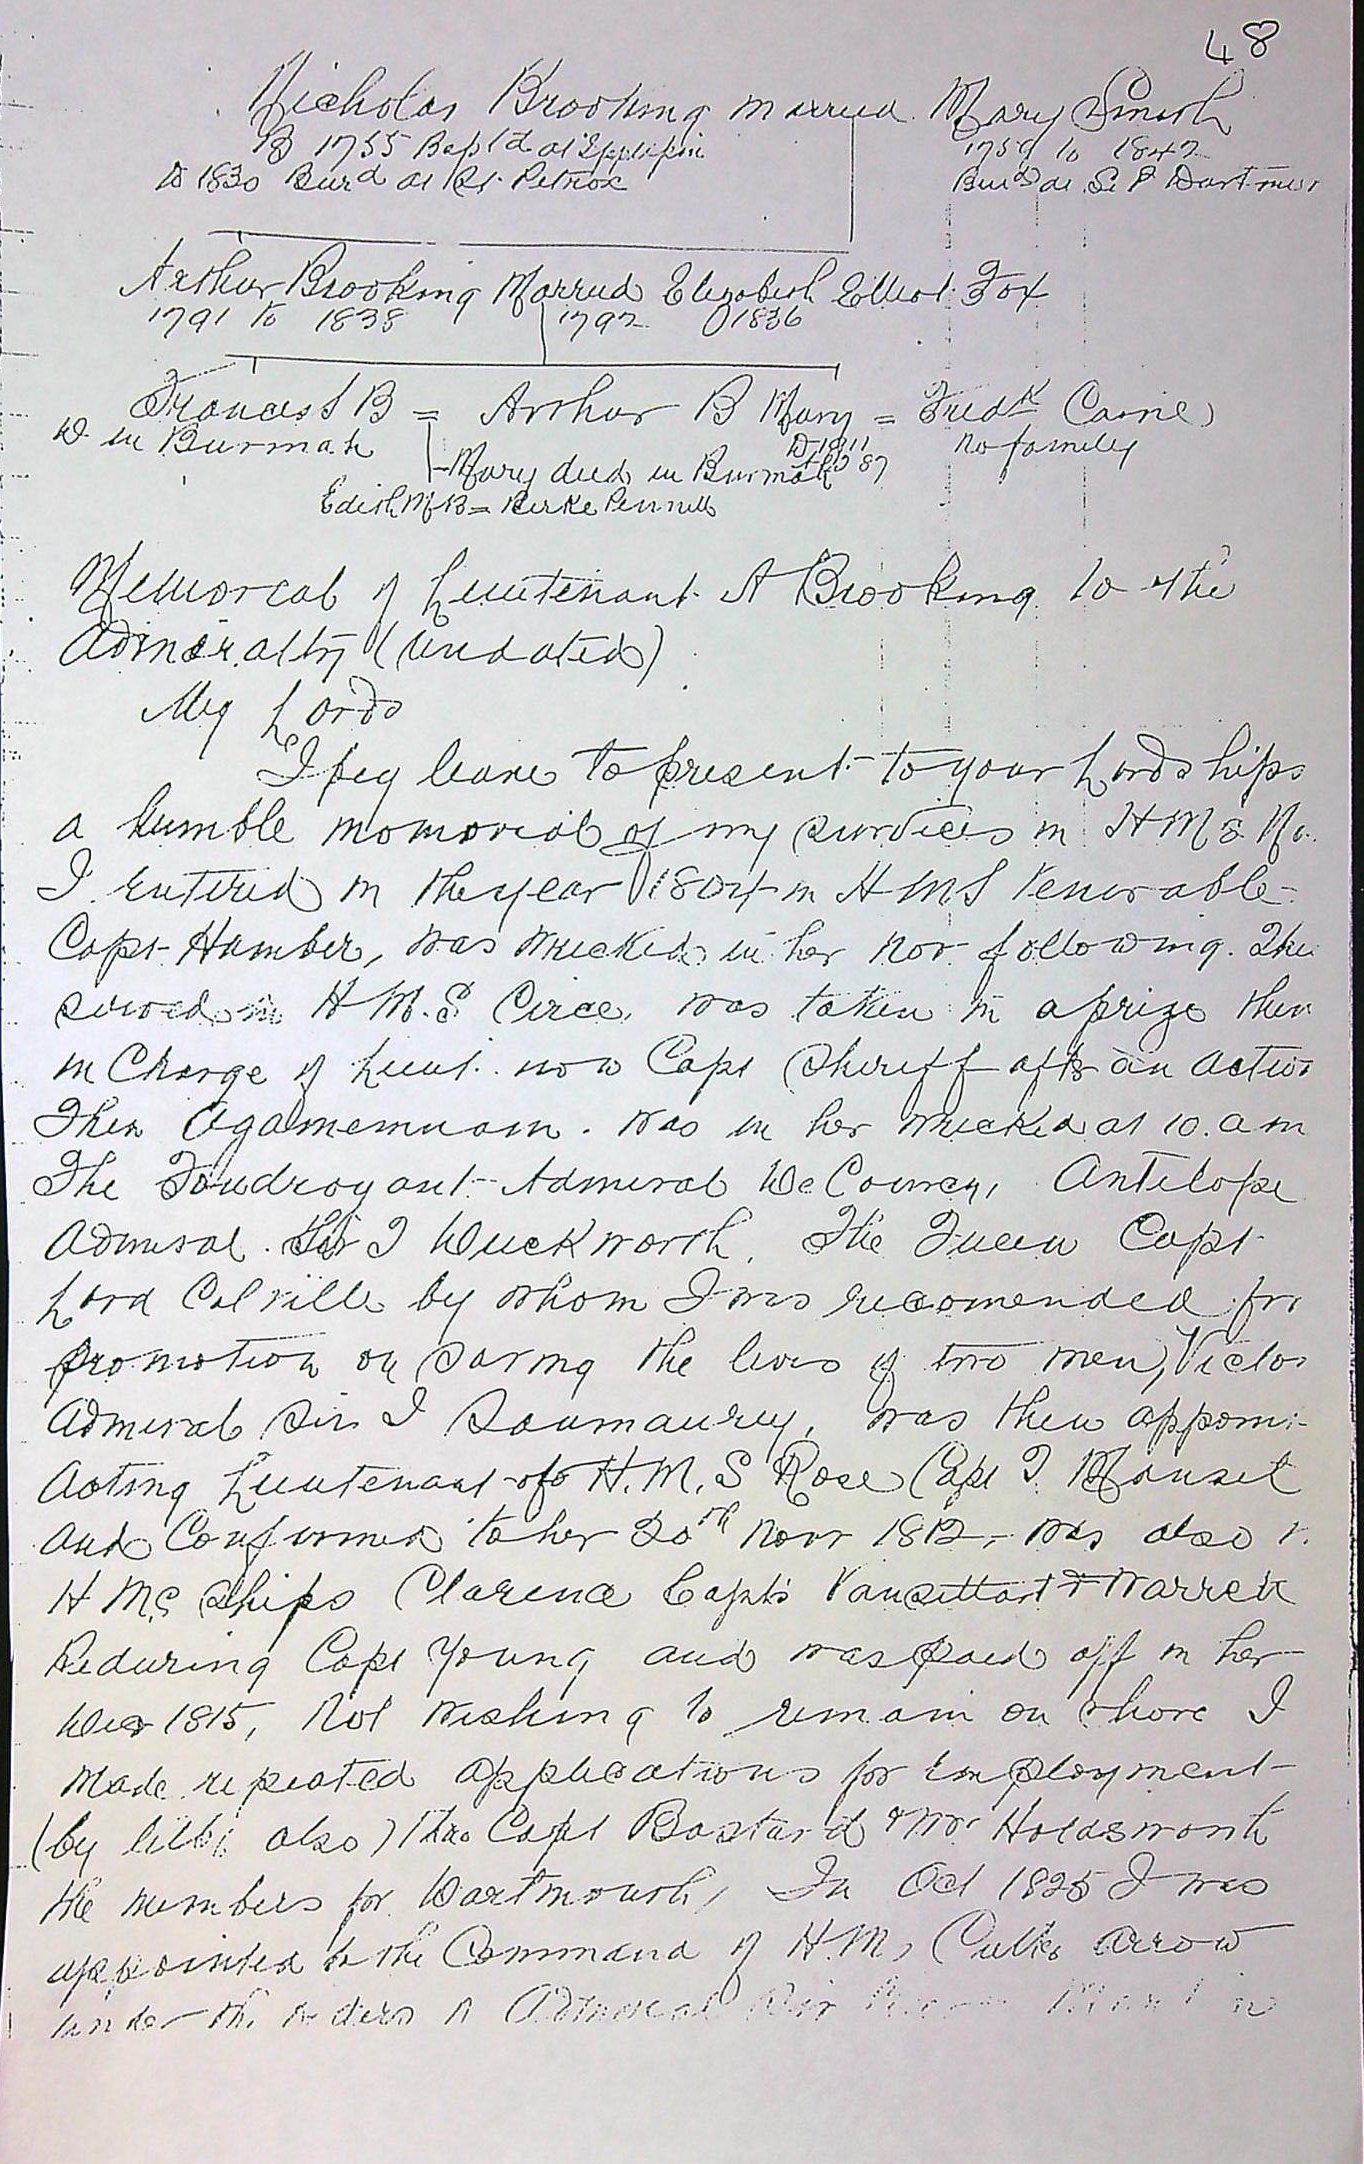 48
Nicholas Brooking married Mary Smith
B 1755 Bapt'd at 1759 to 1842
D 1830 Bur'd at St. Petrox Bur'd at St P Dartmo
Arthur Brooking Married Elizabeth Elliot Fox
1791 to 1838 1792 1836
Frances S B = Arthur B Mary = Fredk Carne
D in Burmah D 1811 No family
Mary died in Burmah 87
Edith M B = Kerke Pennell
Memorial of Lieutenant A Brooking to the
Admiralty (undated)
My Lords
I beg leave to present to your Lordships
a humble memorial of my services in HMS
I entered in the year 1804 in HMS Venerable
Capt Hunber, was wrecked in her Nov following. The
served in H M.S Circe, was taken in a prize then
in Charge of Lieut. now Capt Sheriff aftr an action
Then Agamemnon. was in her wrecked at 10. a m
The Foudroyant Admiral De Courcy, Antelope
Admiral Sir J Duckworth. The Queen Capt
Lord Colville by whom I was recomended for
promotion on saving the lives of two men, Victor
Admiral Sir J Saumaurey, was then appoin
Acting Lieutenant of H.M.S Rose Capt T. Mansel
and Confirmed to her 20th Novr 1812, was also
H M S Ships Clarence Capts Vansittart & Warren
Reduring Capt Young and was paid off in her
Decr 1815, Not wishing to remain on shore I
made repeated applications for Employment
(by also) Thro Capt Bastard & Mr Holdsworth
the members for Dartmouth, In Oct 1825 I was
appointed to the Command of H.M, Cutter Arrow
under the orders of Admiral Sir